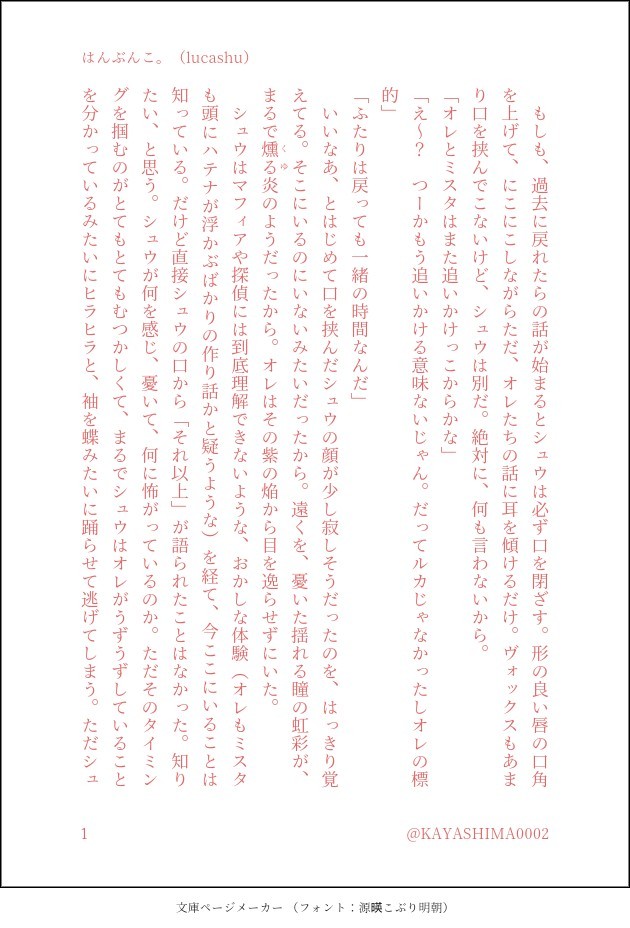 はんぶんこ。（lucashu）
　もしも、過去に戻れたらの話が始まるとシュウは必ず口を閉ざす。形の良い唇の口角
を上げて、にこにこしながらただ、オレたちの話に耳を傾けるだけ。ヴォックスもあま
り口を挟んでこないけど、シュウは別だ。絶対に、何も言わないから。
「オレとミスタはまた追いかけっこからかな」
「え〜？　つーかもう追いかける意味ないじゃん。だってルカじゃなかったしオレの標
的」
「ふたりは戻っても一緒の時間なんだ」
　いいなあ、とはじめて口を挟んだシュウの顔が少し寂しそうだったのを、はっきり覚
えてる。そこにいるのにいないみたいだったから。遠くを、憂いた揺れる瞳の虹彩が、
まるで燻る炎のようだったから。オレはその紫の焔から目を逸らせずにいた。
くゆ
　シュウはマフィアや探偵には到底理解できないような、おかしな体験（オレもミスタ
も頭にハテナが浮かぶばかりの作り話かと疑うような）を経て、今ここにいることは
知っている。だけど直接シュウの口から「それ以上」が語られたことはなかった。知り
たい、と思う。シュウが何を感じ、憂いて、何に怖がっているのか。ただそのタイミン
グを掴むのがとてもとてもむつかしくて、まるでシュウはオレがうずうずしていること
を分かっているみたいにヒラヒラと、袖を蝶みたいに踊らせて逃げてしまう。ただシュ
1
@KAYASHIMA0002
文庫ページメーカー（フォント：源暎こぶり明朝）